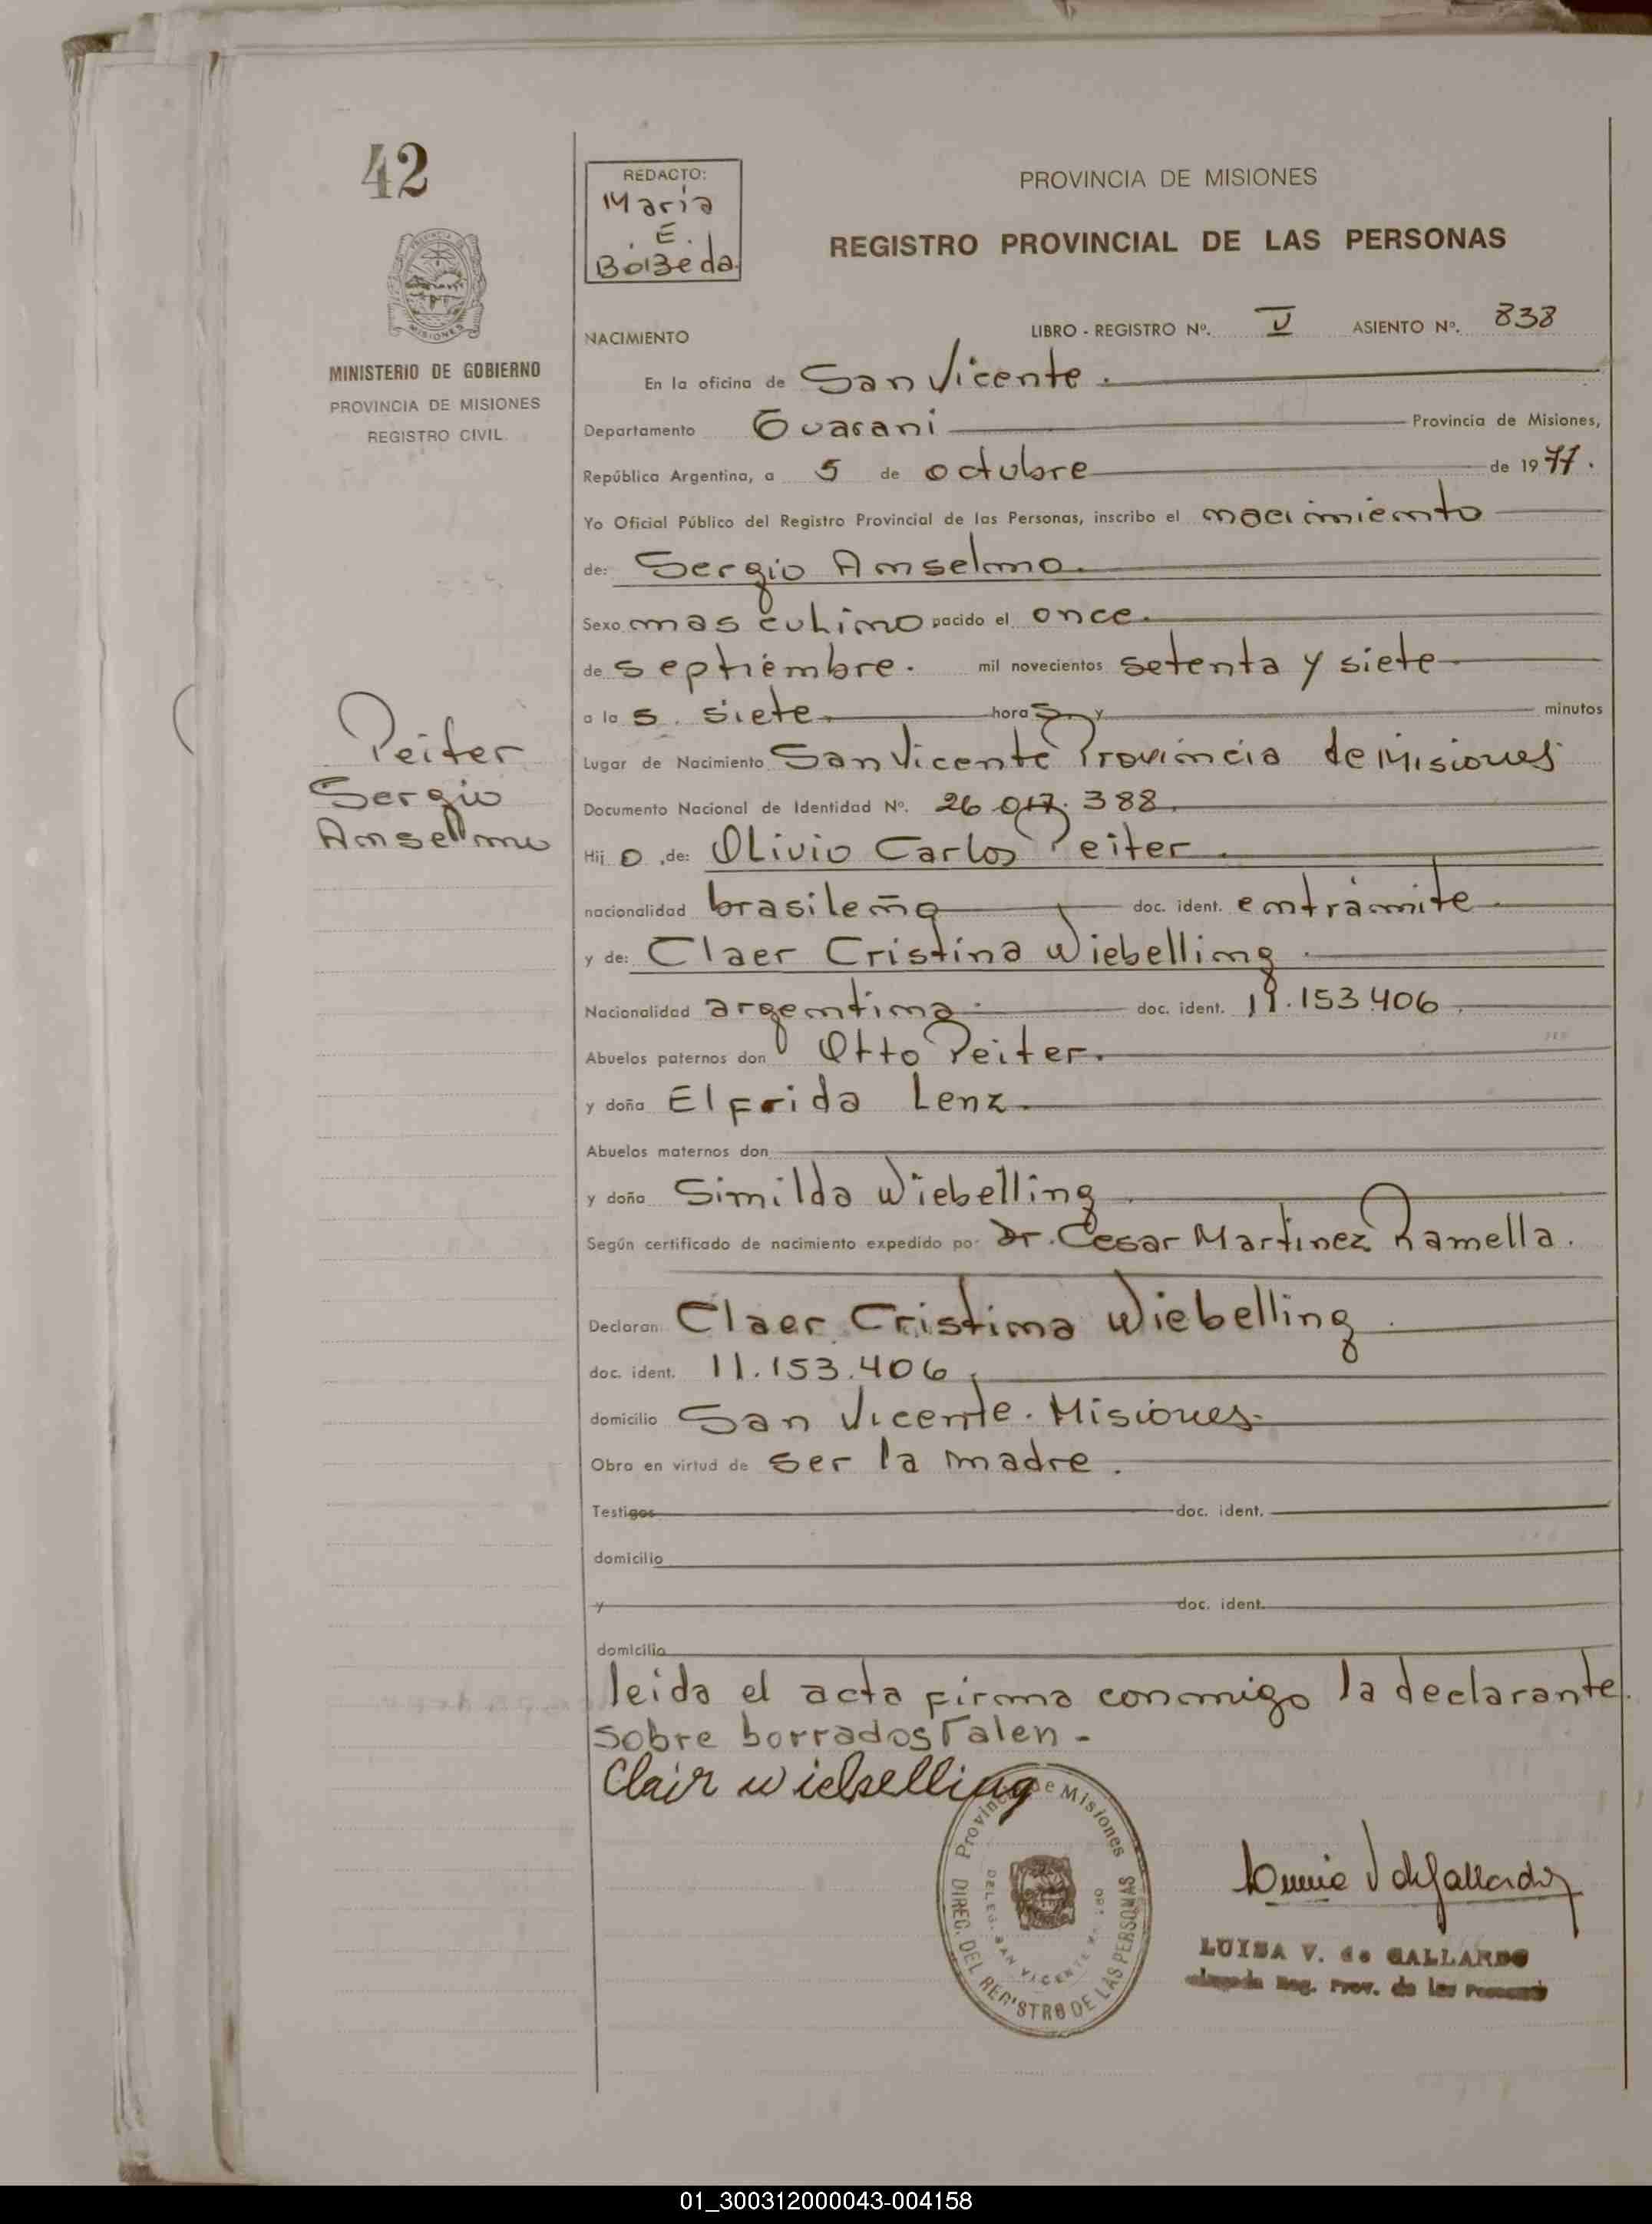 42
PROVINCIA DE
MISIONES
MINISTERIO DE GOBIERNO
PROVINCIA DE MISIONES
REGISTRO CIVIL
Peiter
Sergio
Anselmo
REDACTO:
Maria
E.
Bolzeda
PROVINCIA DE MISIONES
REGISTRO PROVINCIAL DE LAS PERSONAS
NACIMIENTO LIBRO - REGISTRO Nº. V ASIENTO Nº. 838
En la oficina de San Vicente.
Departamento Guarani Provincia de Misiones,
República Argentina, a 5 de octubre de 1977.
Yo Oficial Público del Registro Provincial de las Personas, inscribo el nacimiento
de: Sergio Anselmo.
Sexo masculino nacido el once.
de septiembre. mil novecientos setenta y siete
a las siete horas y minutos
Lugar de Nacimiento San Vicente Provincia de Misiones
Documento Nacional de Identidad Nº. 26.017.388.
Hijo de: Olivio Carlos Peiter.
nacionalidad brasileña doc. ident. en trámite
y de: Claer Cristina Wiebelling.
Nacionalidad argentina. doc. ident. 11.153.406.
Abuelos paternos don Otto Peiter.
y doña Elfrida Lenz.
Abuelos maternos don
y doña Similda Wiebelling.
Según certificado de nacimiento expedido por Dr. Cesar Martinez Ramella.
Declaran Claer Cristina Wiebelling.
doc. ident. 11.153.406.
domicilio San Vicente. Misiones.
Obra en virtud de ser la madre.
Testigos doc. ident.
domicilio
y doc. ident.
domicilio
leida el acta firma conmigo la declarante.
Sobre borrados Valen -
Clair wiebelling
Provincia de Misiones
DIREC. DEL REGISTRO DE LAS PERSONAS
DELEG. SAN VICENTE
LUISA V. de GALLARDO
Reg. Prov. de las Personas
01_300312000043-004158